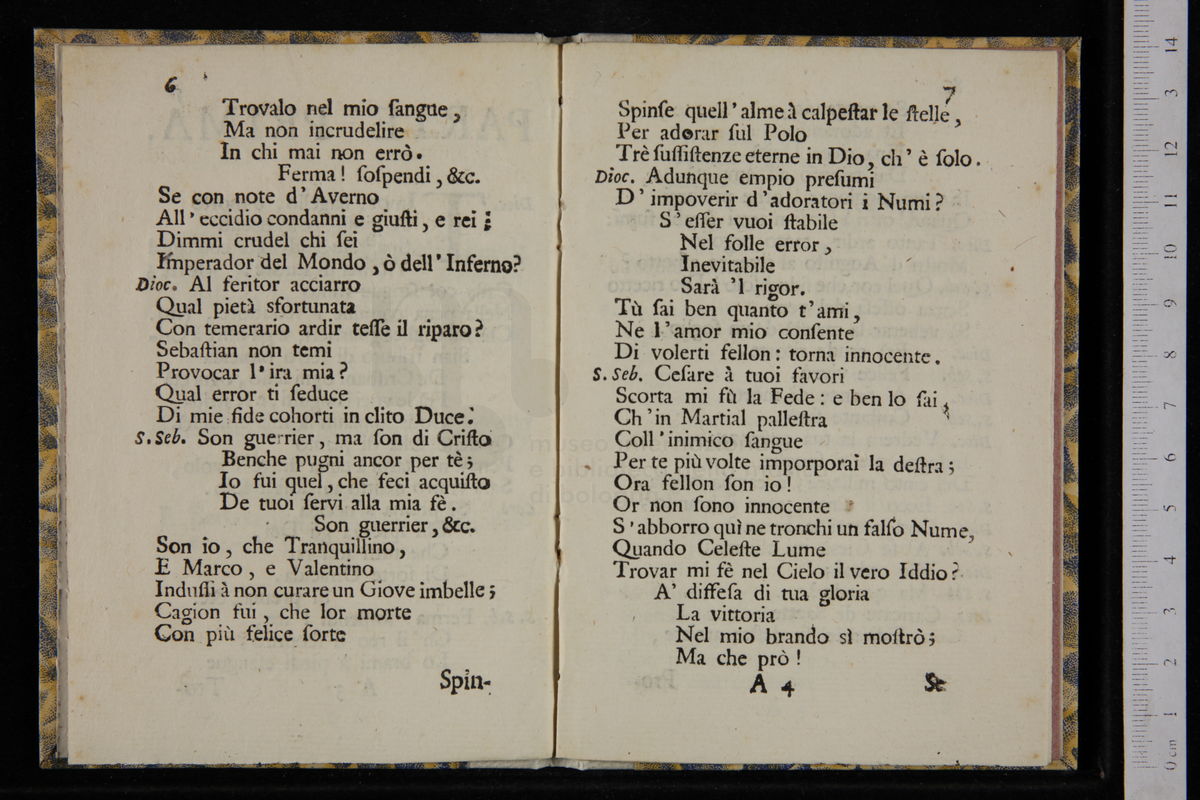 6
Trovalo nel mio ſangue,
Ma non incrudelire
In chi mai non errò.
Ferma! ſoſpendi, &c.
Se con note d'Averno
All'eccidio condanni e giuſti, e rei;
Dimmi crudel chi ſei
Imperador del Mondo, ò dell'Inferno?
Dioc. Al feritor acciarro
Qual pietà sfortunata
Con temerario ardir teſſe il riparo?
Sebaſtian non temi
Provocar l'ira mia?
Qual error ti ſeduce
Di mie fide cohorti in clito Duce.
S. Seb. Son guerrier, ma ſon di Criſto
Benche pugni ancor per tè;
Io fui quel, che feci acquiſto
De tuoi ſervi alla mia fè.
Son guerrier, &c.
Son io, che Tranquillino,
E Marco, e Valentino
Induſſi à non curare un Giove imbelle;
Cagion fui, che lor morte
Con più felice ſorte
Spin-
7
Spinſe quell'alme à calpeſtar le ſtelle,
Per adorar ſul Polo
Trè ſuſſiſtenze eterne in Dio, ch'è ſolo.
Dioc. Adunque empio preſumi
D'impoverir d'adoratori i Numi?
S'eſſer vuoi ſtabile
Nel folle error,
Inevitabile
Sarà 'l rigor.
Tù ſai ben quanto t'ami,
Ne l'amor mio conſente
Di volerti fellon: torna innocente.
S. Seb. Ceſare à tuoi favori
Scorta mi fù la Fede: e ben lo ſai,
Ch'in Martial palleſtra
Coll'inimico ſangue
Per te più volte imporporai la deſtra;
Ora fellon ſon io!
Or non ſono innocente
S'abborro quì ne tronchi un falſo Nume,
Quando Celeſte Lume
Trovar mi fè nel Cielo il vero Iddio?
A' diffeſa di tua gloria
La vittoria
Nel mio brando sì moſtrò;
Ma che prò!
A 4
Se